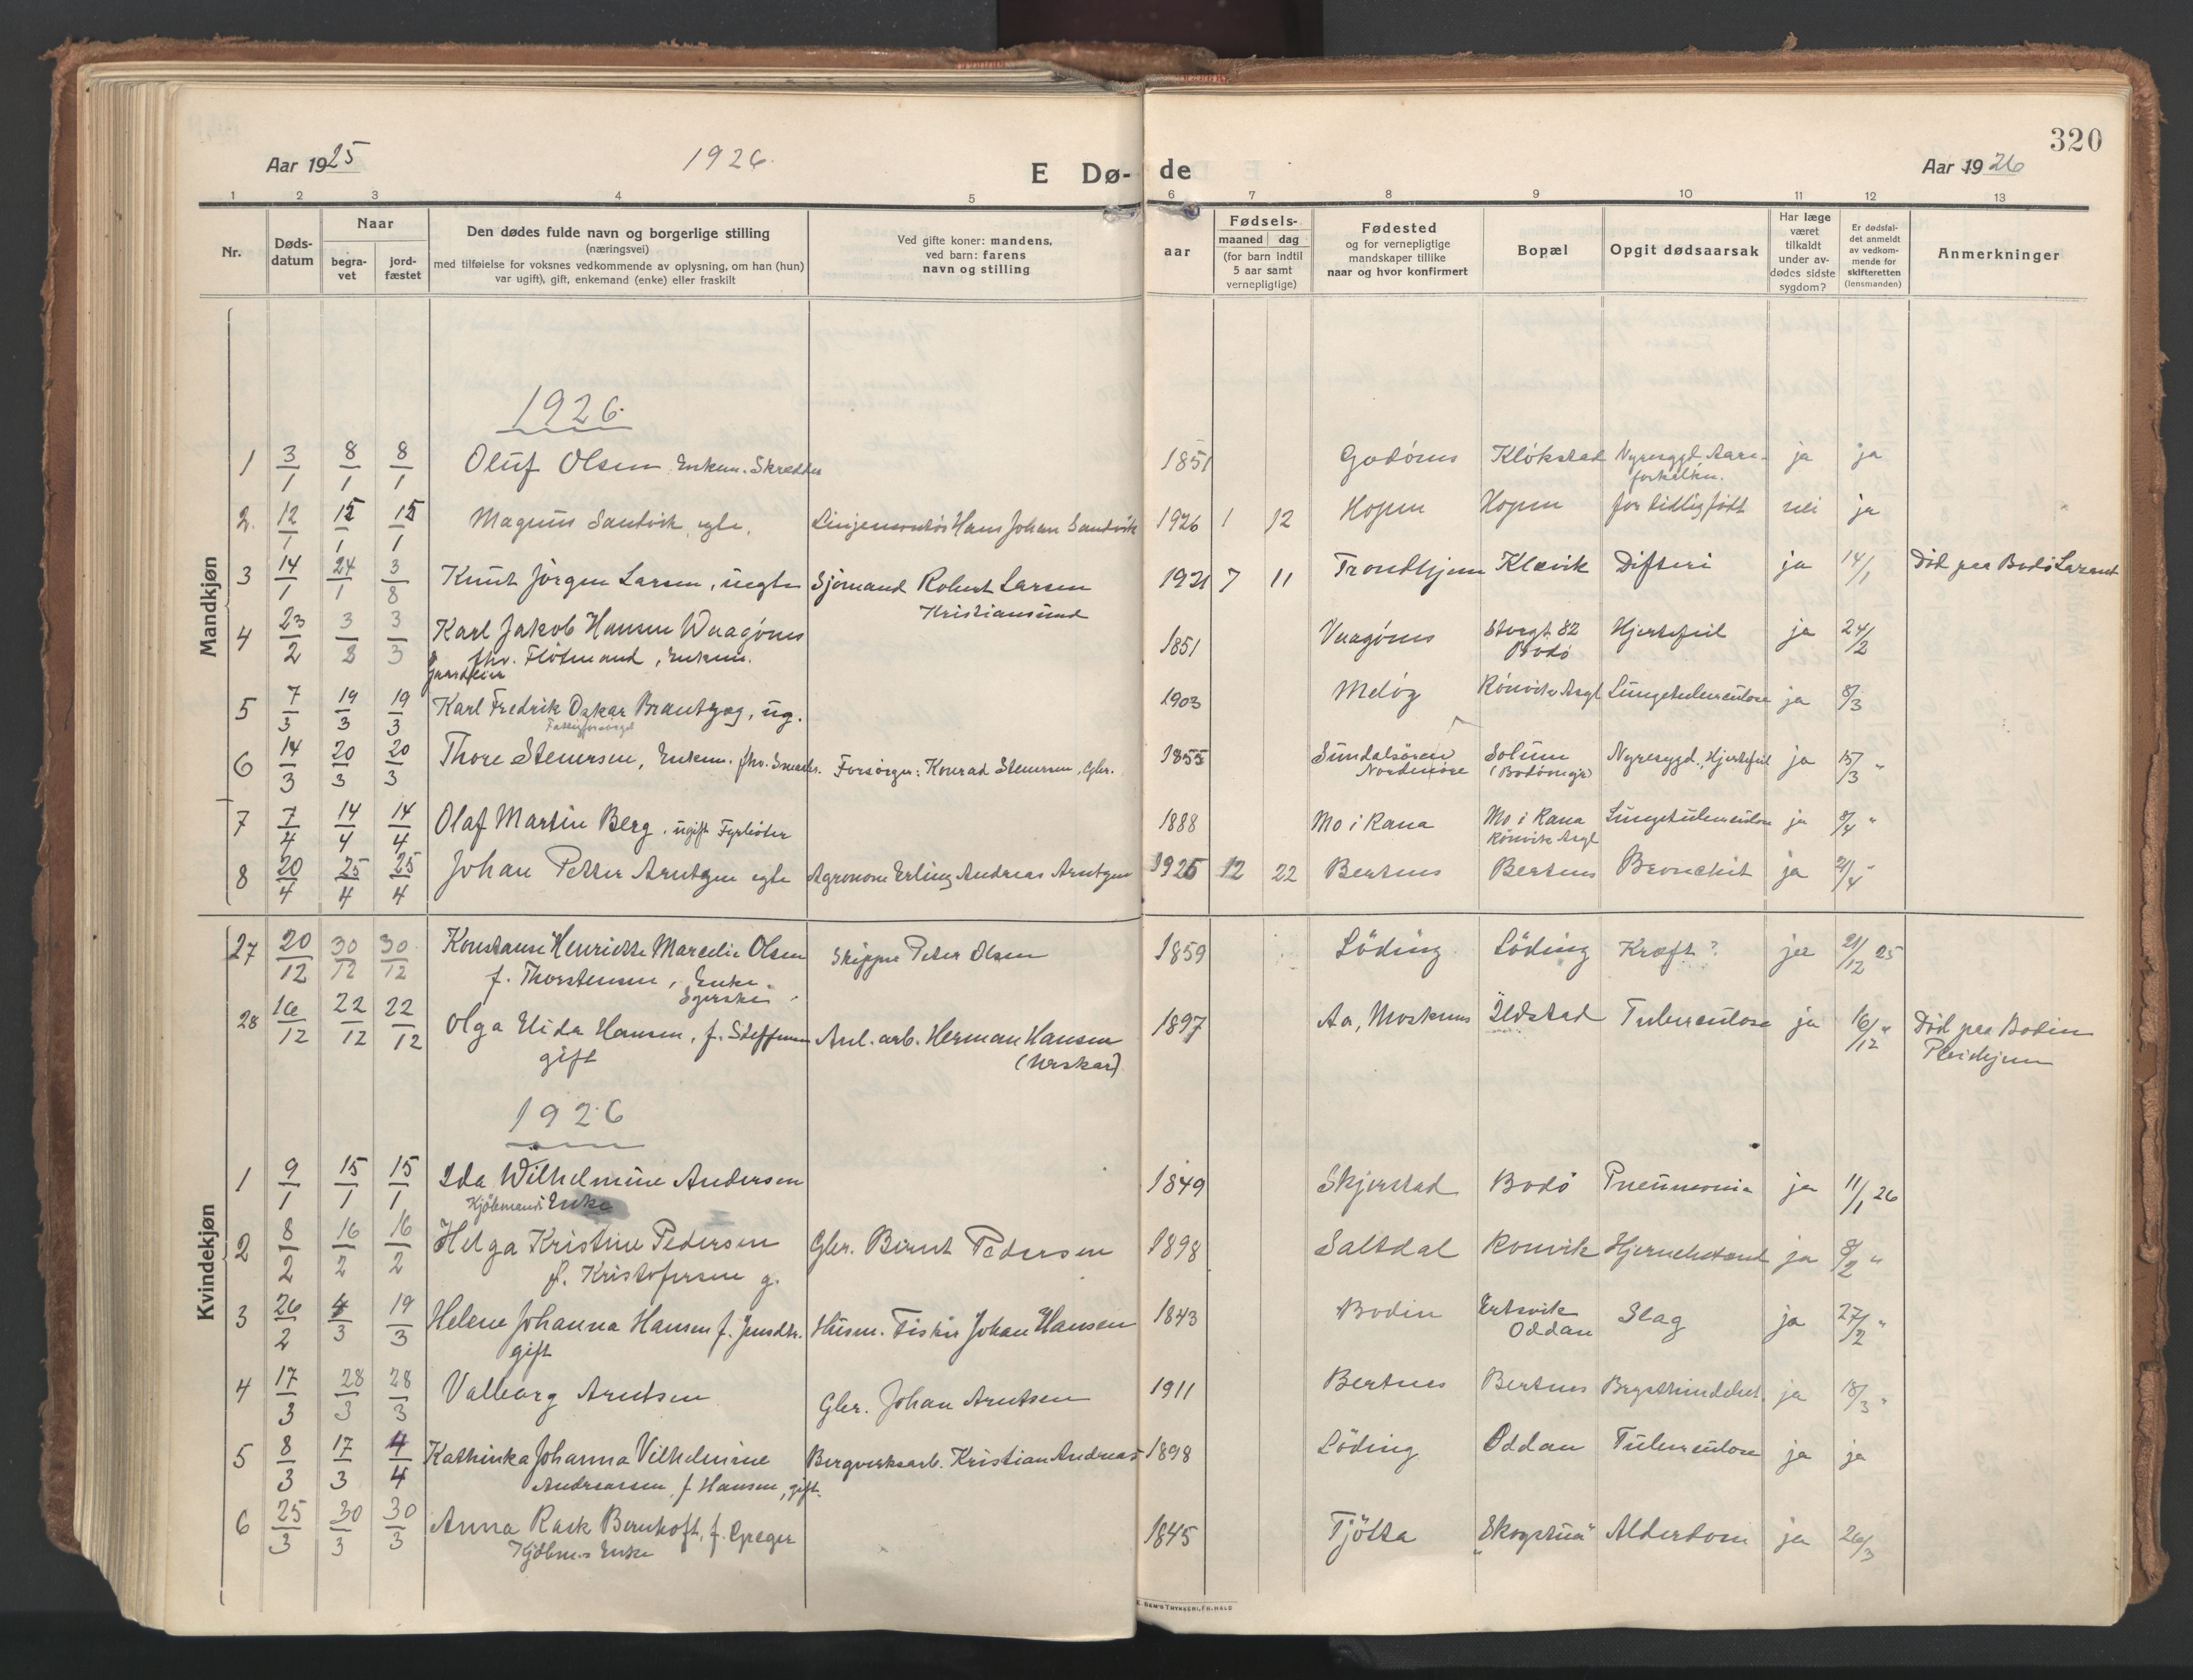 320
Aar 1925 1926. E Dø- de Aar 1926
1 2 3 4 5 6 7 8 9 10 11 12 13
Nr. Døds-datum Naar begra-vet jord-fæstet
Den dødes fulde navn og borgerlige stilling
(næringsvei)
med tilføielse for voksnes vedkommende av oplysning, om han (hun)
var ugift), gift, enkemand (enke) eller fraskilt
Ved gifte koner: mandens,
ved barn: farens
navn og stilling
aar
Fødsels-
maaned dag
(for barn indtil
5 aar samt
vernepligtige)
Fødested
og for vernepligtige
mandskaper tillike
naar og hvor konfirmert
Bopæl
Opgit dødsaarsak
Har læge
været
tilkaldt
under av-
dødes sidste
sygdom?
Er dødsfal-
det anmeldt
av vedkom-
mende for
skifteretten
(lensmanden)
Anmerkninger
Mandkjøn
1926.
1 3/1 8/1 8/1 Oluf Olsen, Enkem. Skrædder 1851 Godønes Kløkstad Nyresygd. Aare- ja ja
forkalkn.
2. 12/1 15/1 15/1 Magnus Sandvik, egte, Linjemontør Hans Johan Sandvik 1926 1 12 Hopen Hopen for tidlig født nei ja
3 14/1 24/1 3/8 Knut Jørgen Larsen, uegte Sjømand Robert Larsen 1921 7 11 Trondhjem Klævik Difteri ja 14/1 Död paa Bodö Lazaret
Kristiansund
4 23/2 3/3 3/3 Karl Jakob Hansen Vaagønes 1851 Vaagönes Storgt. 82 Hjertefeil ja 24/2
fhv. Fløtmand, Enkem. Bodø
Jordeier
5 7/3 19/3 19/3 Karl Fredrik Oskar Brantzæg, ug. 1903 Meløy Rønvik Asyl Lungetuberculose ja 8/3
Fattigforsørgd
6 14/3 20/3 20/3 Thore Stenersen, Enkem. fhv. Snedker. Forsørger: Konrad Stenersen, Gbr. 1855 Sundalsøren Solum Nyresygd., Hjertefeil ja 15/3 "
Nordmøre
7 7/4 14/4 14/4 Olaf Martin Berg, ugift Fyrbøter 1888 Mo i Rana Mo i Rana Lungetuberculose ja 8/4 "
Rønvik Asyl
8 20/4 25/4 25/4 Johan Petter Arntzen egte Agronom Erling Andreas Arntzen 1925 12 22 Bertnes Bertnes Bronchit ja 21/4 "
Kvindekjøn
27 20/12 30/12 30/12 Konstanse Henriette Marcelie Olsen Skipper Peter Olsen 1859 Löding Löding Kræft? ja 21/12 25
f. Thorstensen, Enke.
28 16/12 22/12 22/12 Olga Elida Hansen, f. Steffensen Anl. arb. Herman Hansen 1897 Aa, Moskenes Ildstad Tuberculose ja 16/12 " Död paa Bodin
gift Pleiehjem
1926
1 9/1 15/1 15/1 Ida Wilhelmine Andersen 1849 Skjerstad Bodö Pneumonia ja 11/1 26
Kjöbmands Enke
2 8/2 16/2 16/2 Helga Kristine Pedersen Gbr. Bernt Pedersen 1898 Saltdal Ronvik ja 8/2 "
f. Kristofersen g.
3 26/2 4/3 19/3 Helene Johanna Hansen f. Jensdtr. Husm. Fisker Johan Hansen 1843 Bodin Ertsvik Slag ja 27/2 "
gift Oddan
4 17/3 28/3 28/3 Valborg Arntsen Gbr. Johan Arntsen 1911 Bertnes Bertnes Brysthindebet. ja 18/3 "
5 8/3 17/3 4/4 Kathinka Johanna Vilhelmine Bergverksarb. Kristian Andreas- 1898 Löding Oddan Tuberculose ja ja
Andreassen, f. Hansen, gift.
6 25/3 30/3 30/3 Anna Rask Bernhoft, f. Greger 1845 Tjötta "Skogstua" Alderdom ja 26/3
Kjöbm.s Enke